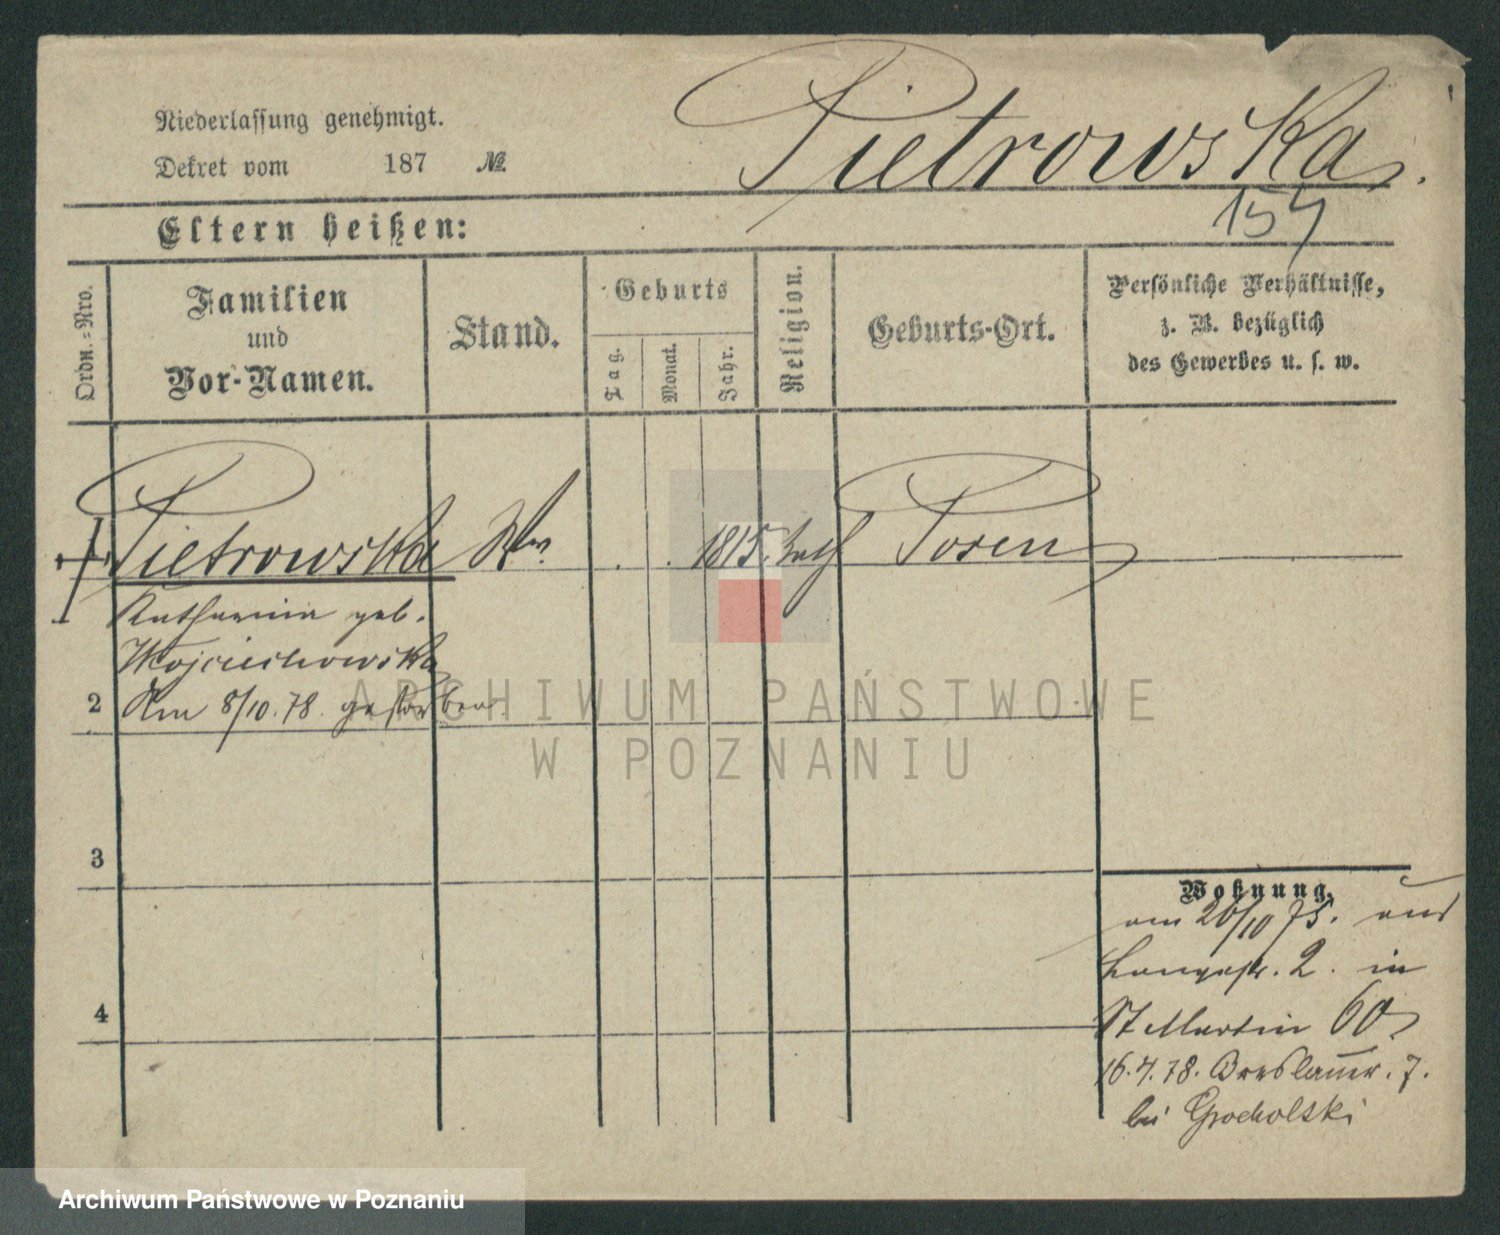 Niederlassung genehmigt.
Dekret vom 187 №
Pietrowska.
154
Eltern heißen:
Ordn.-Nro.
Familien
und
Vor-Namen.
Stand.
Geburts
Tag.
Monat.
Jahr.
Religion.
Geburts-Ort.
Persönliche Verhältnisse,
z. B. bezüglich
des Gewerbes u. s. w.
Pietrowska Ww. . . 1815. kath Posen
Katharina geb.
Wojciechowska
2 Am 8/10.78. gestorben
3
4
Wohnung.
am 20/10 75. aus
Langestr. 2. in
St Martin 60
16.4.78. Breslauer. 7.
bei Grocholski
ARCHIWUM PAŃSTWOWE
W POZNANIU
Archiwum Państwowe w Poznaniu